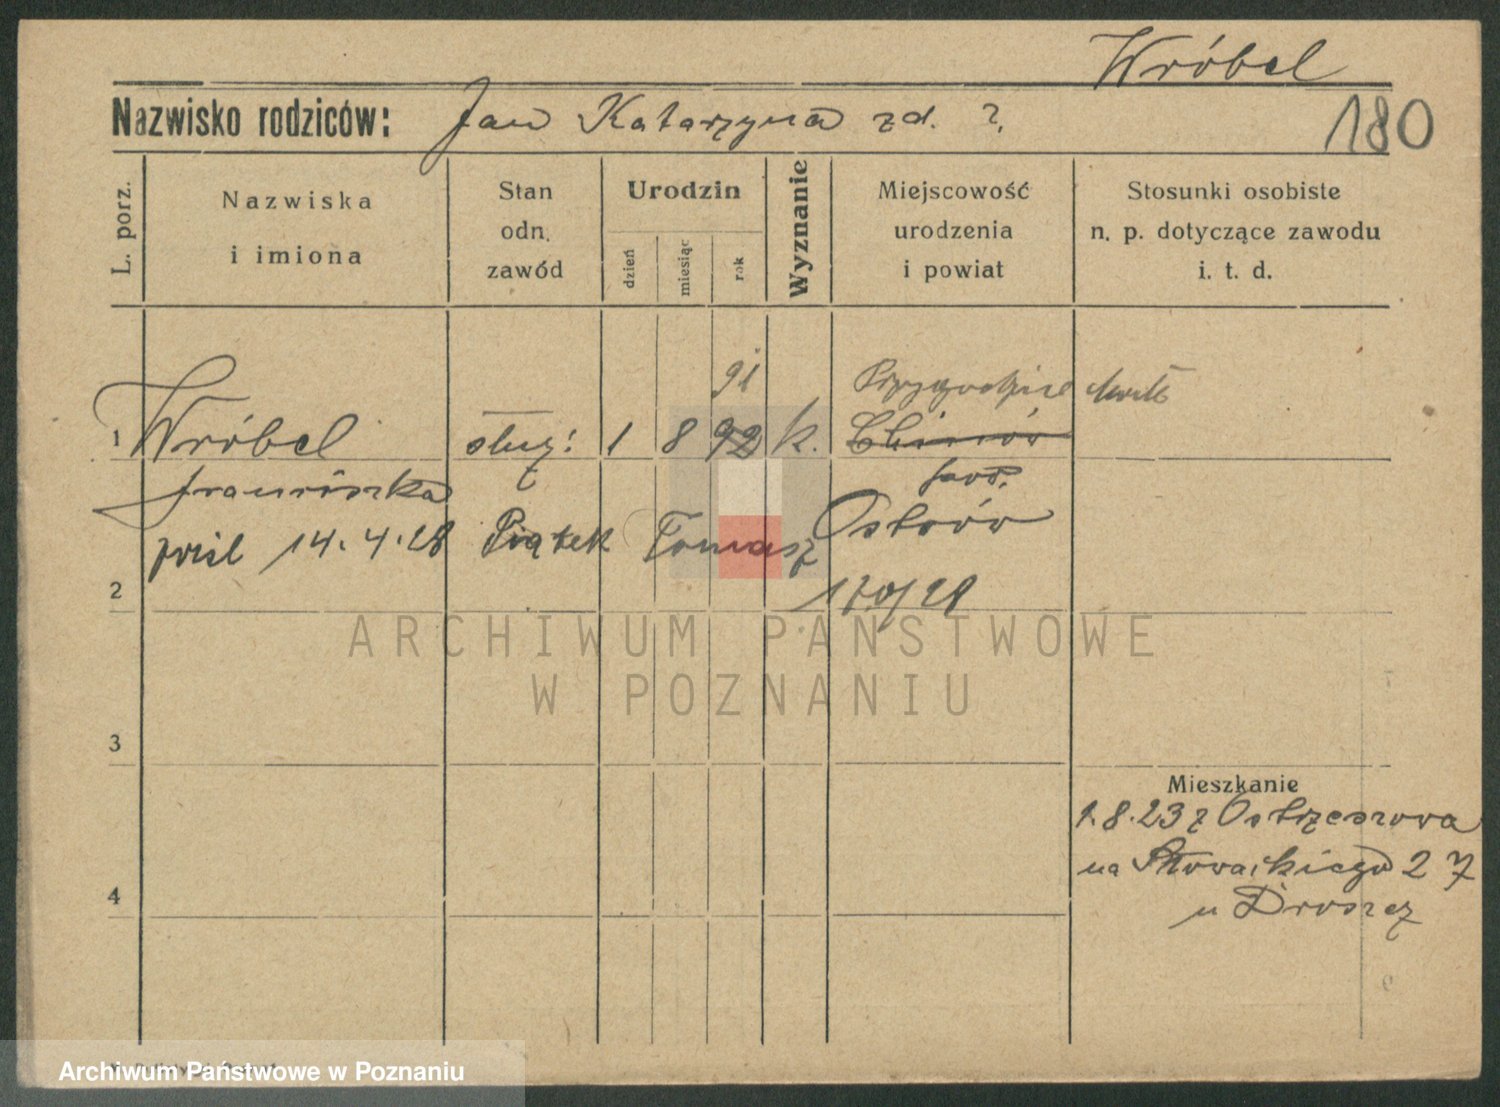 Wróbel
Nazwisko rodziców: Jan Katarzyna zd. ?
180
L. porz.
Nazwiska
i imiona
Stan
odn.
zawód
Urodzin
dzień
miesiąc
rok
Wyznanie
Miejscowość
urodzenia
i powiat
Stosunki osobiste
n. p. dotyczące zawodu
i. t. d.
91 Przygodzice
1 Wróbel służ. 1 8 92 k.
Franciszka
Ostrów
14.4.28 Piątek Tomasz
2 170/28
ARCHIWUM PAŃSTWOWE
W POZNANIU
3
Mieszkanie
1.8.23 z Ostrzeszowa
na Słowackiego 27
4
u Droszcz
Archiwum Państwowe w Poznaniu